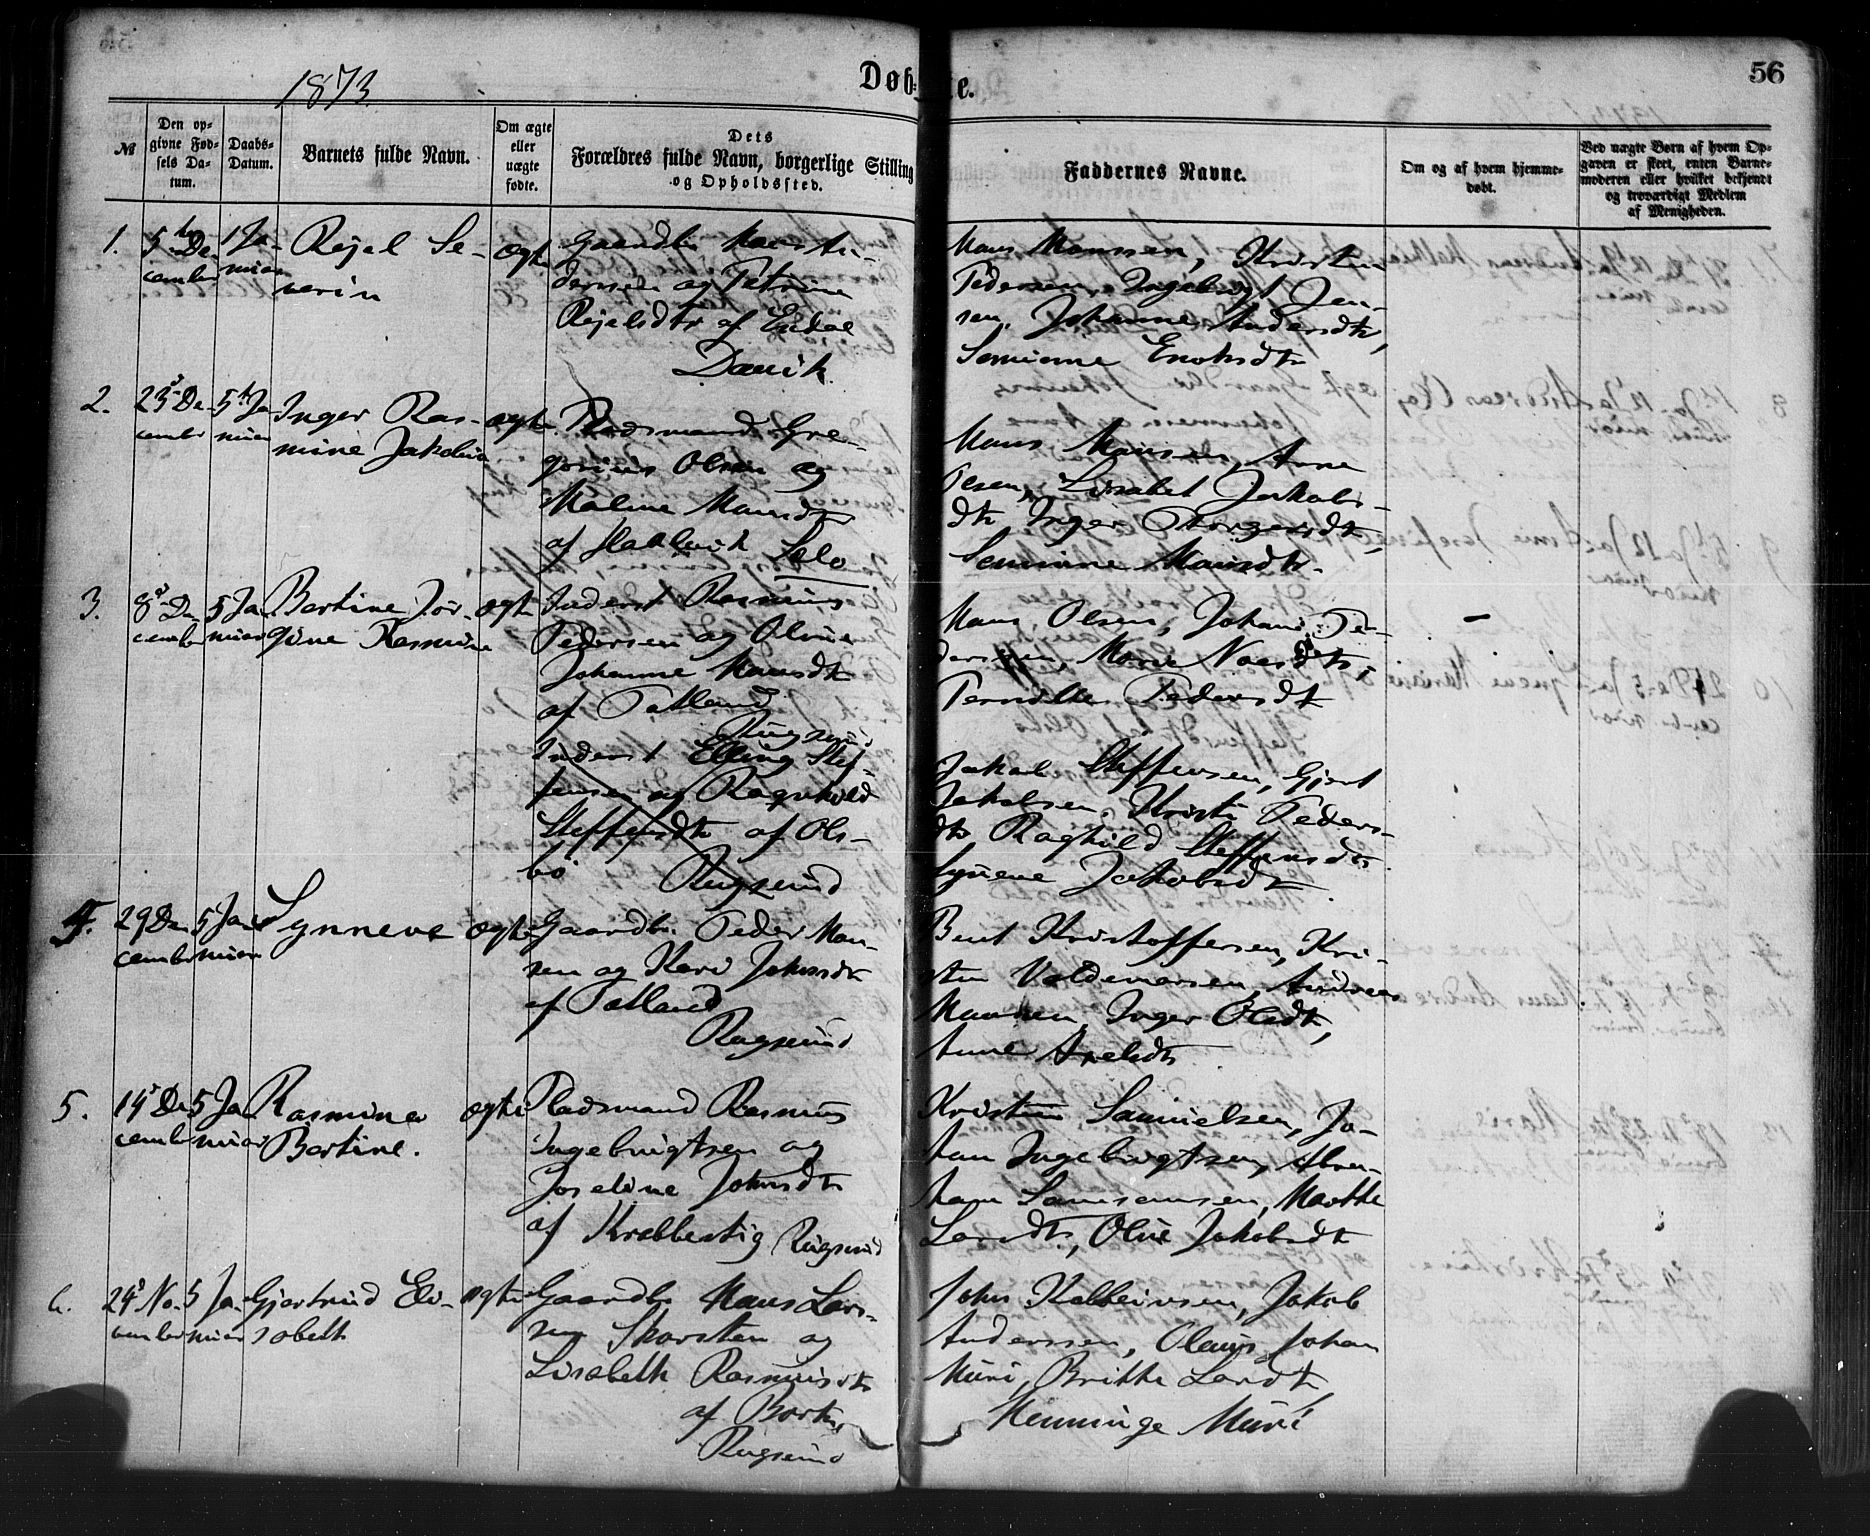 56
1873.
Døb- te.
№
Den op-
givne Fød-
sels Da-
tum.
Daabs-
Datum.
Barnets fulde Navn.
Om ægte
eller
uægte
fødte.
Dets
Forældres fulde Navn, borgerlige Stilling
og Opholdssted.
Faddernes Navne.
Om og af hvem hjemme-
døbt.
Ved uægte Børn af hvem Op-
gaven er skeet, enten Barne-
moderen eller hvilket bekjendt
og troværdigt Medlem
af Menigheden.
1. 5te De-
cember
1 Ja-
nuar
Rejel Se-
verin
ægte
Gaardbr. Mons An-
dersen og Petrine
Rejelsdtr af Endal
Davik
Mons Monssen, Kristen
Pedersen, Ingebrigt Jen-
sen, Johanne Andersdtr,
Semine Enoksdtr
2. 23 De-
cember
5te Ja-
nuar
Inger Ras-
mine Jakobine
ægte
Pladsmand Gre-
gorius Olsen og
Maline Monsdtr
af Hallevik Selo
Mons Monsen, Arne
Olsen, Lisabet Jakobs-
dtr Inger Torgersdtr,
Semine Monsdtr.
3. 8 De-
cember
5 Ja-
nuar
Bertine Jør-
gine Rasmine
ægte
Inderst Rasmus
Pedersen og Oline
Johanne Monsdtr
af Totland
Rugsund
Mons Olsen, Johans Pe-
dersen, Marie
Pernille Pedersdtr
-
Inderst Elling Stef-
fensen og Ragnhild
Steffensdtr af Ols-
bø Rugsund
Jakob Steffensen, Gjert
Jakobsen, Kristi Peders-
dtr Raghild Steffensdtr
Synneve Jakobsdtr
4. 29 De-
cember
5 Ja-
nuar
Synneve
ægte
Gaardbr. Peder Mon-
sen og Kari Johnsdtr
af Totland
Rugsund
Bent Kristoffersen, Kri-
sten Valdemarsen, Andreas
Monsen, Inger Olsdtr,
Anne Axelsdtr
5. 14 De-
cember
5 Ja-
nuar
Rasmine
Bertine.
ægte
Pladsmand Rasmus
Ingebrigtsen og
Joseline Johnsdtr
af Krabbestig Rugsund
Kristen Samuelsen, Jo-
han Ingebrigtsen, Abra-
ham Samsonsen, Marthe
Larsdtr, Oline Jakobsdtr
6. 24 No-
vember
5 Ja-
nuar
Gjertrud Eli-
sabeth
ægte
Gaardbr. Mons Lars-
sen Skorsten og
Lisabeth Rasmusdtr
af Borten
Rugsund
John Kolbeinsen, Jakob
Anderssen, Olaus Johan
Muri, Britha Larsdtr,
Henninge Muri